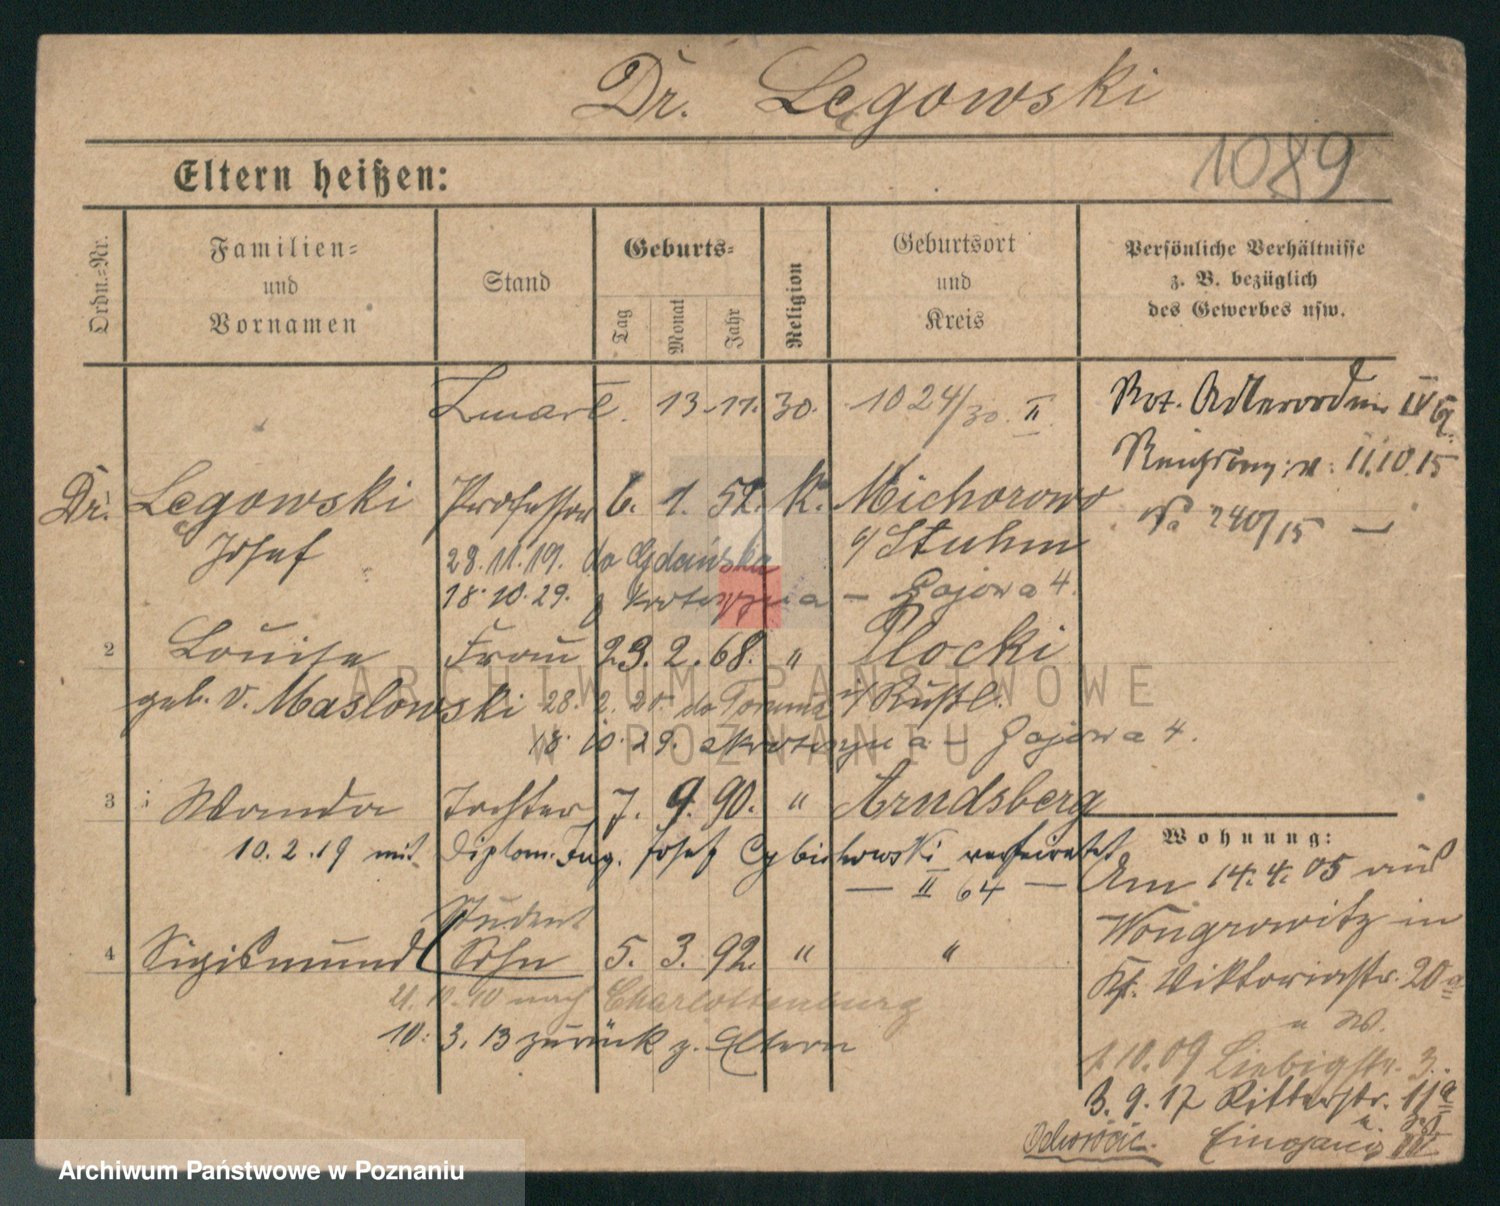 Dr. Łęgowski
1089
Eltern heißen:
Ordn.-Nr.
Familien-
und
Vornamen
Stand
Geburts-
Tag
Monat
Jahr
Religion
Geburtsort
und
Kreis
Persönliche Verhältnisse
z. B. bezüglich
des Gewerbes usw.
Zmarł. 13-11. 30. 1024/30. II
Rot. Adlerorden IV
11.10.15
No 2407/15 —
1 Dr. Łęgowski Professor 6. 1. 52. K. Michorowo
Josef
Stuhm
28.11.19. do Gdańska
18.10.29. z Krotoszyna — Gajowa 4.
2 Louise Frau 23. 2. 68. " Plocki
geb. v. Maslowski 28. 2. 20. do Torunia i/ Rußl.
18. 10. 29. z Krotoszyna — Gajowa 4.
3 Wanda Tochter 7. 9. 90. " Arndsberg
10.2.19 mit Diplom. Ing. Josef Cybichowski verheiratet
— II 64 —
Wohnung:
Am 14.4.05 aus
Wongrowitz in
Viktoriastr. 20a
Student
4 Sigismund Sohn 5. 3. 92. " "
21.10.10 nach Charlottenburg
10. 3. 13 zurück z. Eltern
1.10.09 Liebigstr. 3.
3.9.17 Ritterstr. 11a
ARCHIWUM PAŃSTWOWE
W POZNANIU
Archiwum Państwowe w Poznaniu